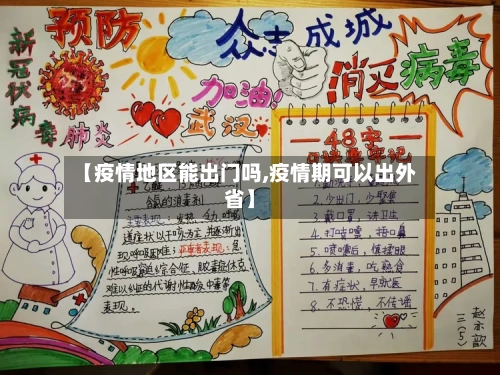 预防
新冠状病毒肺炎
众志成城
消灭病毒
加油!
武汉
48字
【疫情地区能出门吗,疫情期可以出外
省】
氯的消毒剂
主要表现:发热、乏力、呼吸
道症状以干咳为主,并逐渐出
现呼吸困难;严重者表现:急
性呼吸窘迫综合征、脓毒症休克、
难以纠正的代谢性酸中毒等
表现。
2. 少出门,少聚集
3. 戴口罩,讲卫生
4. 打喷嚏,捂口鼻
5. 喷嚏后,慎揉眼
6. 多消毒,吃熟食
7. 有症状,早就医
8. 不恐慌,不传谣
三(5)